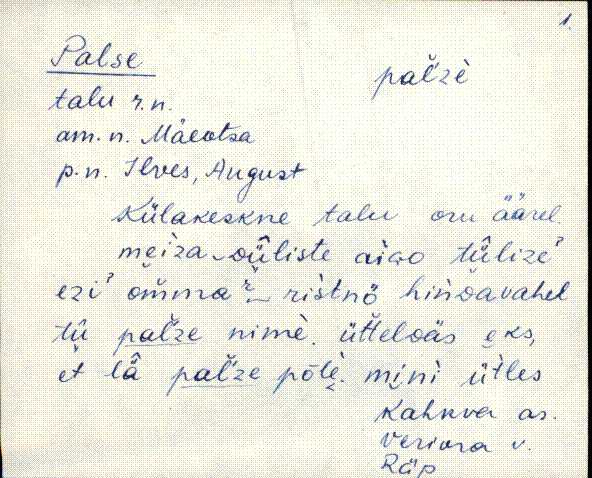 1.
Palse
pal̆'zè
talu r.n.
am. n. Mäeotsa
p.n. Ilves, August
Külakeskne talu oru äärel
meiza
aigo tülize?
ezi? omma ristnö hindävahel
tû pal̆'ze nimè. ütteldäs eks,
 èt lâ pal̆'ze põlè. mini ütles
Kahkva as.
Veriora v.
Räp